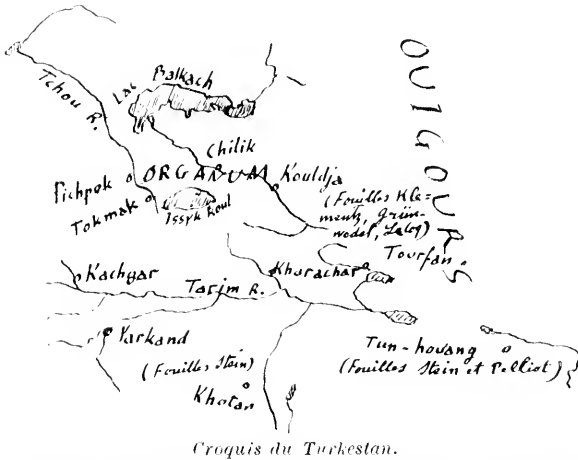 OUIGOURS
Lac Balkach
Tchou R.
Chilik
ORGANUM
Pichpek
Kouldja
Tokmak
Issyk Koul
(Fouilles Kle-
mentz, Grün-
wedel, Lecoq)
Tourfan
Kharachar
Kachgar
Tarim R.
Yarkand
(Fouilles Stein)
Khotan
Tun-houang
(Fouilles Stein et Pelliot)
Croquis du Turkestan.